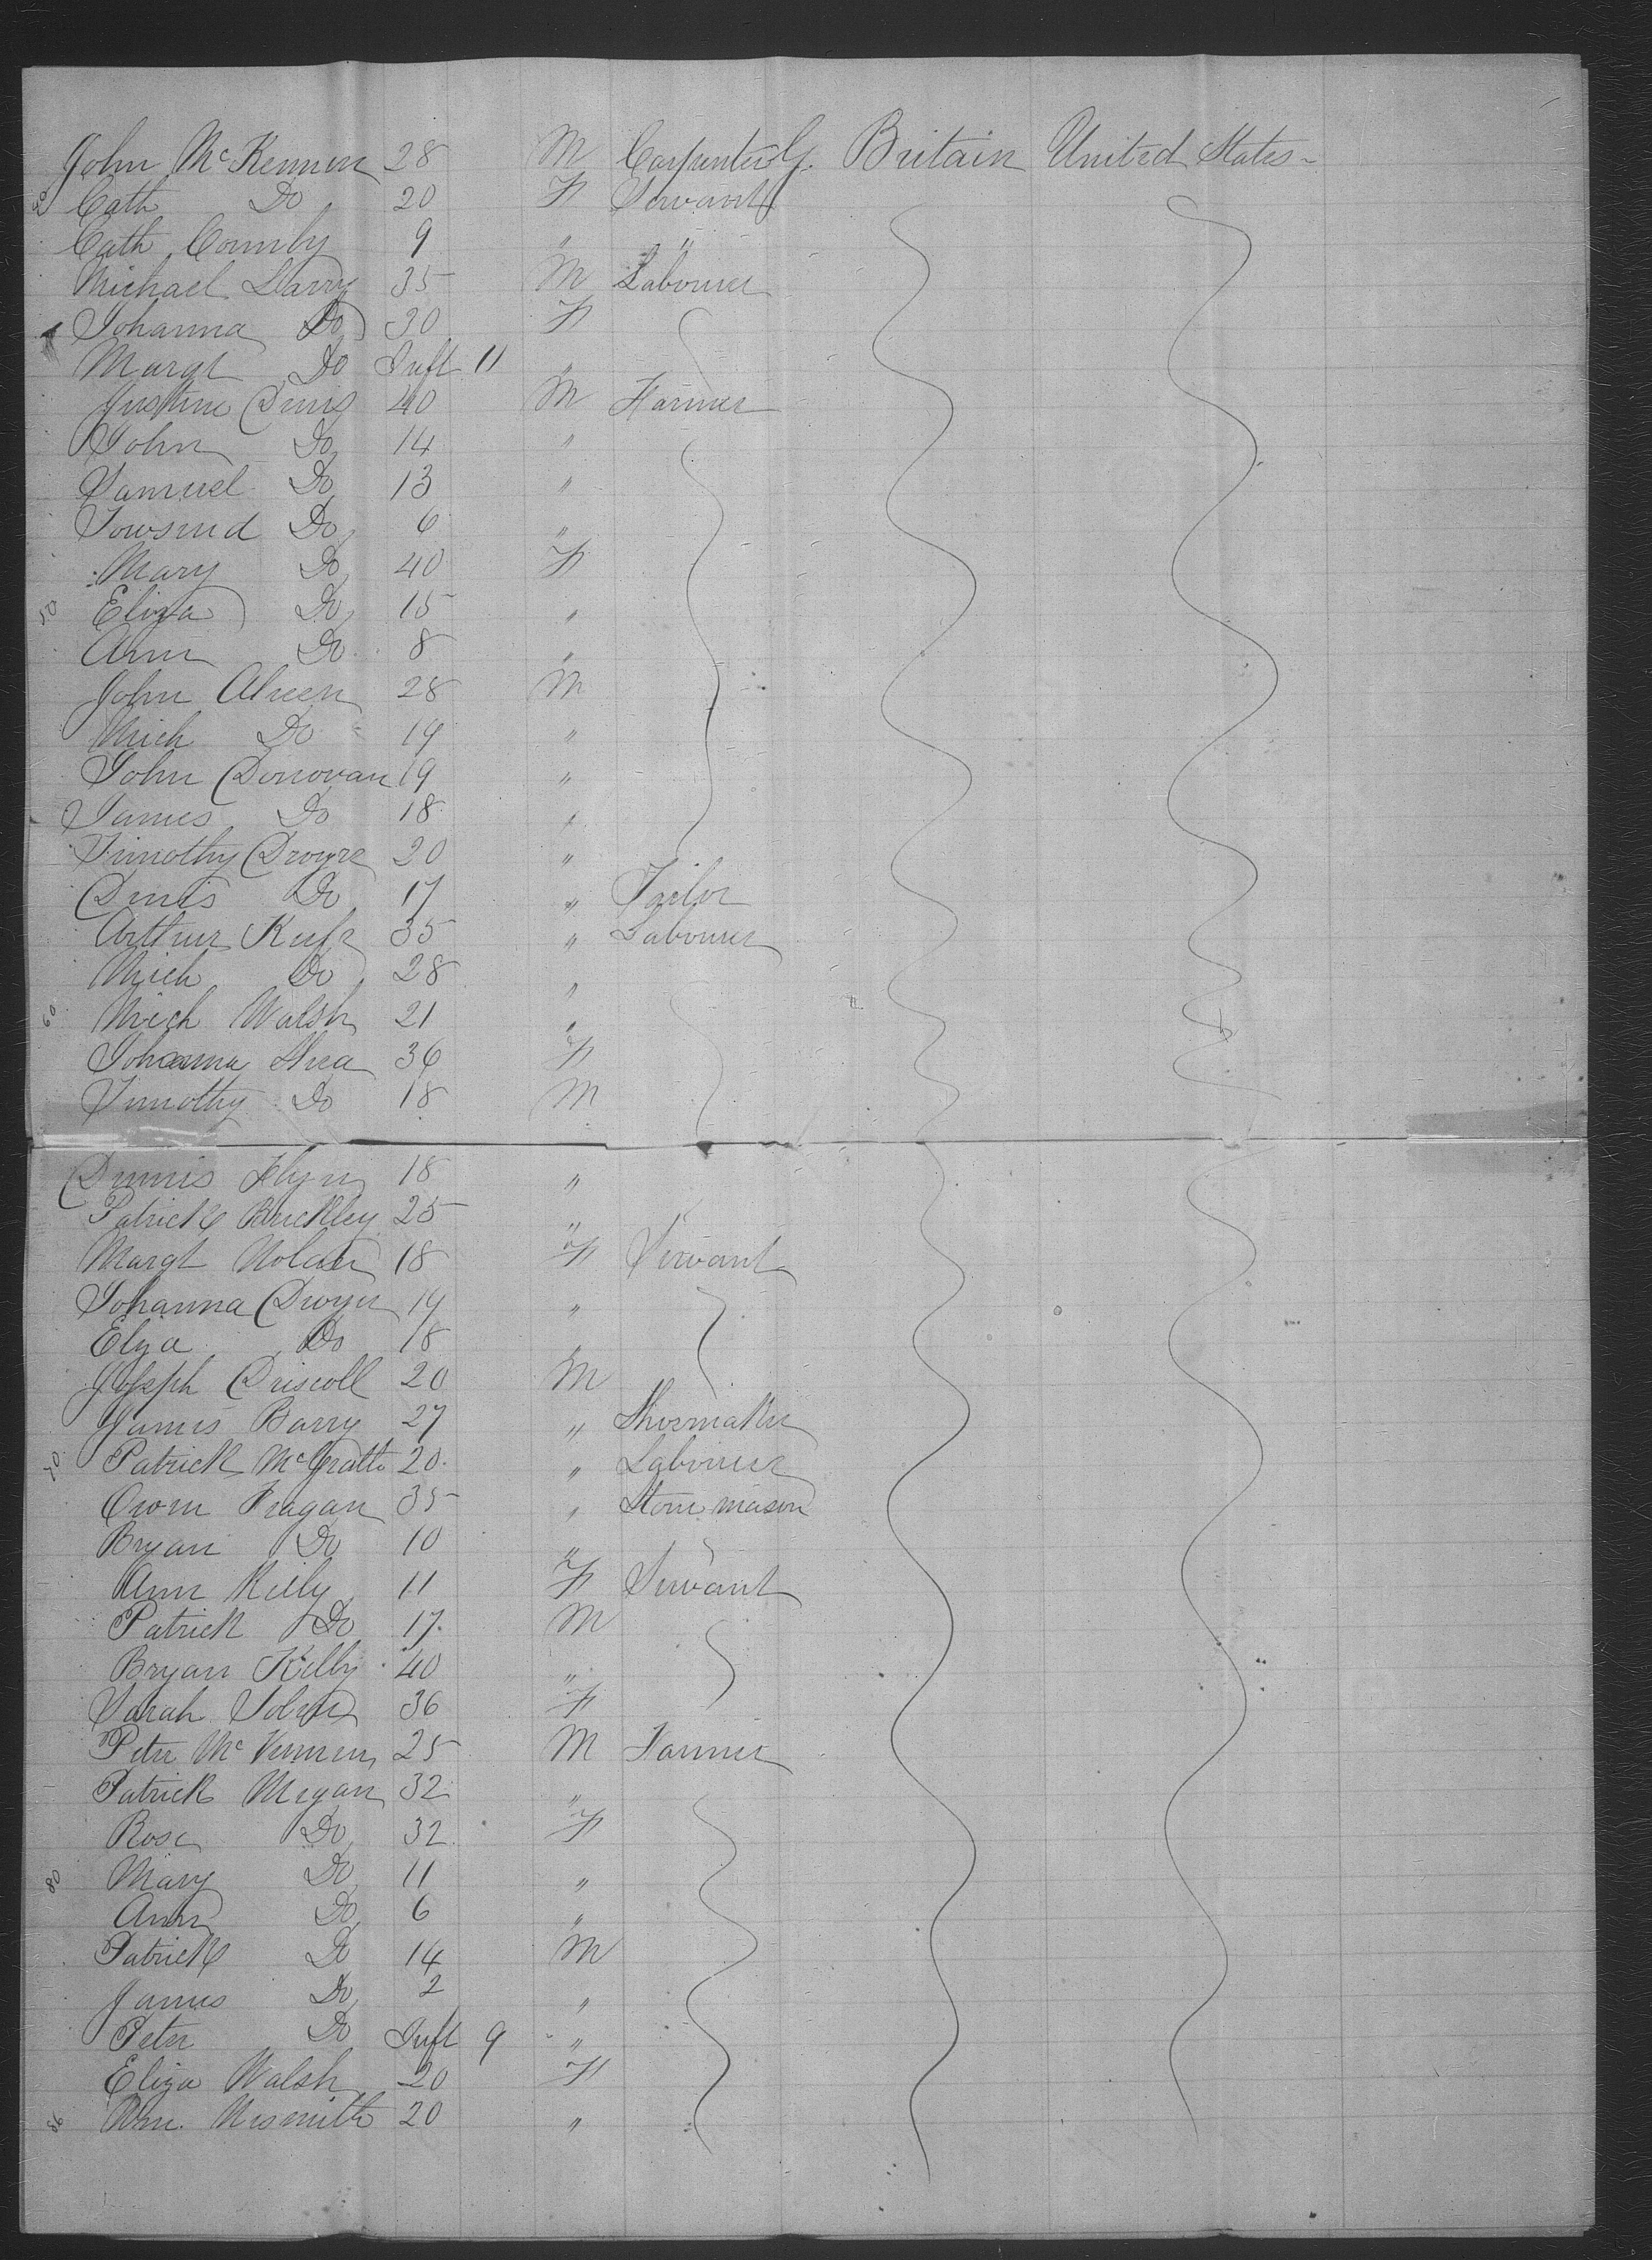 John McKennen 28 M Carpenter G. Britain United States
40 Cath Do 20 F Servant
Cath Cormby 9 " "
Michael Darry 35 M Labourer
Johanna Do 30 F
Margt Do Inft 11 "
Justine Denis 40 M Farmer
John Do 14 "
Samuel Do 13 "
Towsend Do 6 "
Mary Do 40 F
50 Eliza Do 15 "
Ann Do 8 "
John Aheen 28 M
Mich Do 19 "
John Donovan 19 "
James Do 18 "
Timothy Dwyre 20 "
Denis Do 17 " Tailor
Arthur Kufe 35 " Labourer
Mich Do 28 "
60 Mich Walsh 21 "
Johanna Shea 36 F
Timothy Do 18 M
Dennis Flyn 18 "
Patrick Buckley 25 "
Margt Nolan 18 F Servant
Johanna Dwyer 19 "
Elza Do 18 "
Joseph Driscoll 20 M
James Barry 27 " Shoemaker
70 Patrick McGrath 20 " Labourer
Owen Fragan 35 " Stone mason
Bryan Do 10 "
Ann Kelly 11 F Servant
Patrick Do 17 M
Bryan Kelly 40 "
Sarah 36 F
Peter McVennen 25 M Farmer
Patrick Megan 32 "
Rose Do 32 F
80 Mary Do 11 "
Ann Do 6 "
Patrick Do 14 M
James Do 2 "
Peter Do Inft 9 "
Eliza Walsh 20 F
86 Wm. Nesmith 20 "